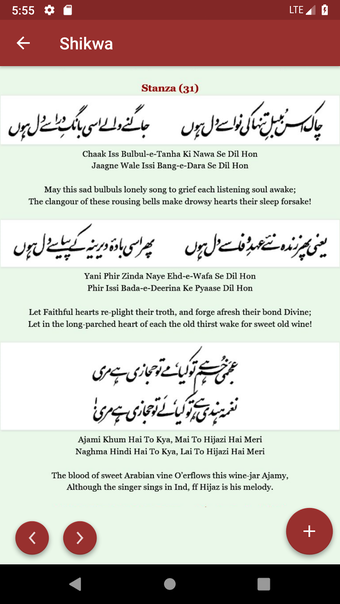 5:55
LTE
Shikwa
Stanza (31)
چاک اس بلبلِ تنہا کی نوا سے دل ہوں
جاگنے والے اسی بانگِ درا سے دل ہوں
Chaak Iss Bulbul-e-Tanha Ki Nawa Se Dil Hon
Jaagne Wale Issi Bang-e-Dara Se Dil Hon
May this sad bulbuls lonely song to grief each listening soul awake;
The clangour of these rousing bells make drowsy hearts their sleep forsake!
یعنی پھر زندہ نئے عہدِ وفا سے دل ہوں
پھر اسی بادۂ دیرینہ کے پیاسے دل ہوں
Yani Phir Zinda Naye Ehd-e-Wafa Se Dil Hon
Phir Issi Bada-e-Deerina Ke Pyaase Dil Hon
Let Faithful hearts re-plight their troth, and forge afresh their bond Divine;
Let in the long-parched heart of each the old thirst wake for sweet old wine!
عجمی خُم ہے تو کیا، مے تو حجازی ہے مری
نغمہ ہندی ہے تو کیا، لَے تو حجازی ہے مری
Ajami Khum Hai To Kya, Mai To Hijazi Hai Meri
Naghma Hindi Hai To Kya, Lai To Hijazi Hai Meri
The blood of sweet Arabian vine O'erflows this wine-jar Ajamy,
Although the singer sings in Ind, ff Hijaz is his melody.